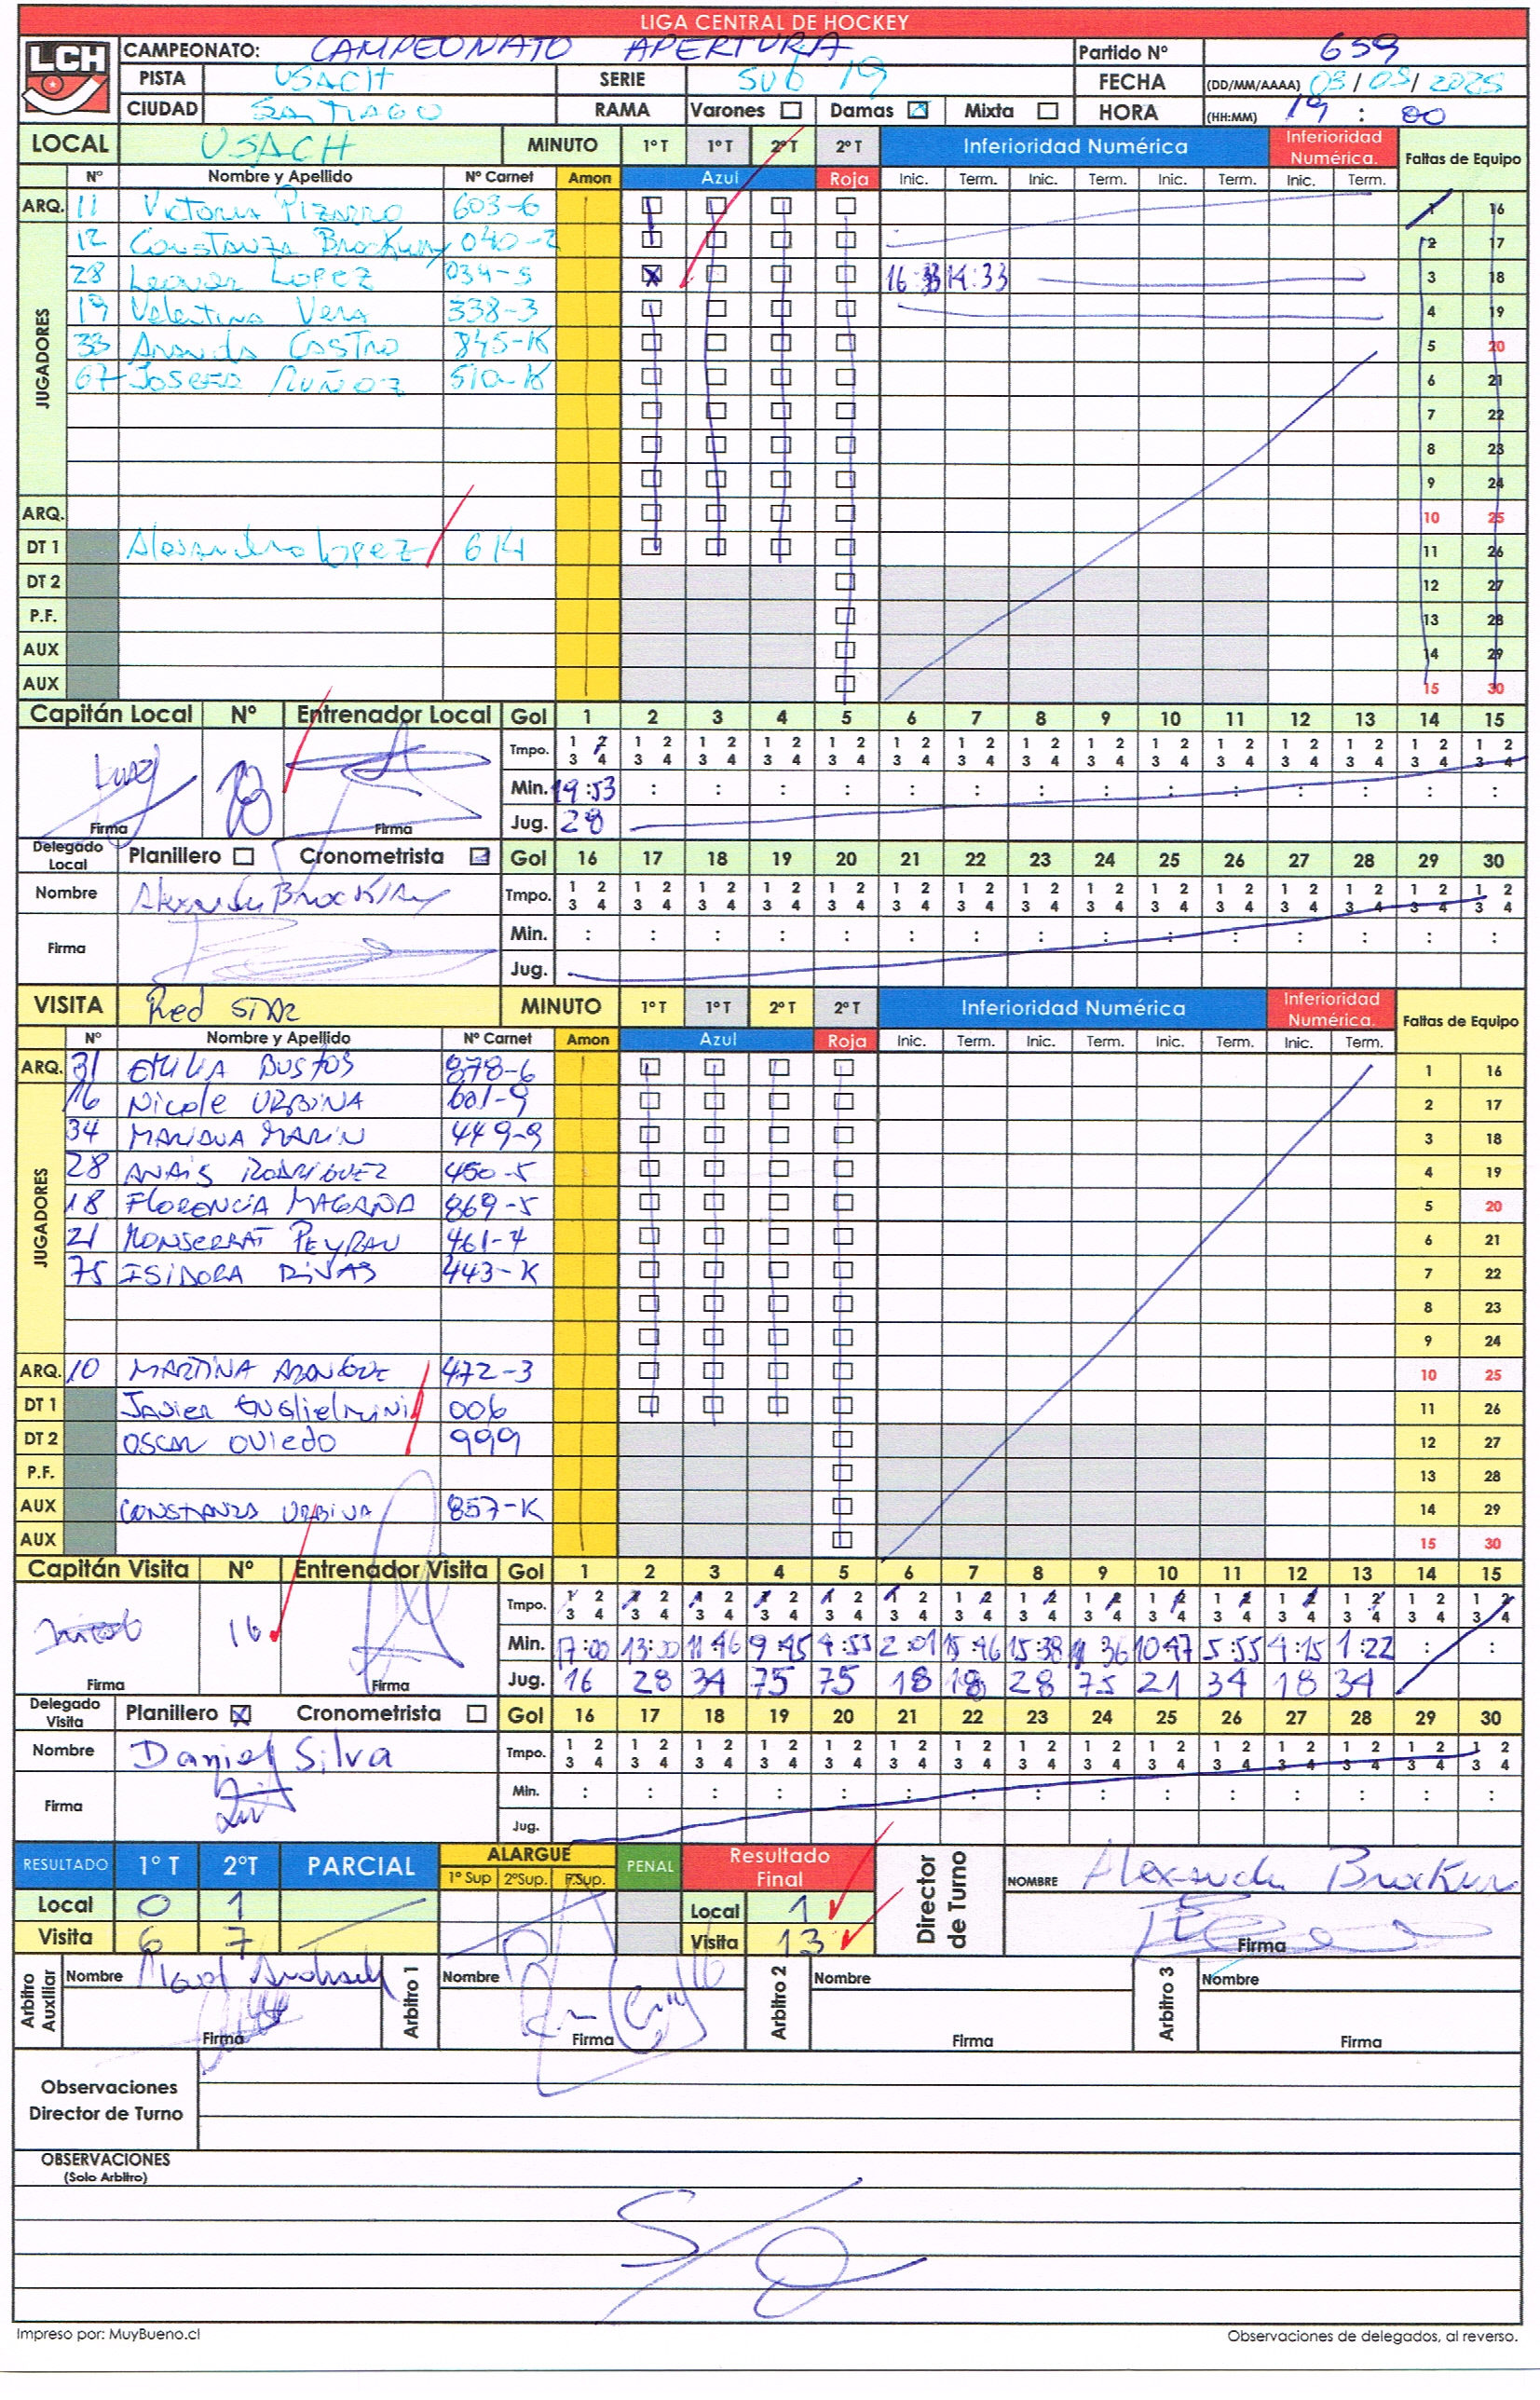 LIGA CENTRAL DE HOCKEY
LCH
CAMPEONATO: CAMPEONATO APERTURA Partido Nº 659
PISTA USACH SERIE SUB 19 FECHA (DD/MM/AAAA) 03/05/2025
CIUDAD SANTIAGO RAMA Varones Damas Mixta HORA (HH:MM) 19:00
LOCAL USACH MINUTO 1º T 1º T 2º T 2º T Inferioridad Numérica Inferioridad Numérica. Faltas de Equipo
Nº Nombre y Apellido Nº Carnet Amon Azul Roja Inic. Term. Inic. Term. Inic. Term. Inic. Term.
ARQ. 11 Victoria Pizarro 603-6 1 16
JUGADORES
12 Constanza Brockway 040-2 2 17
28 Leonor Lopez 034-5 16:33 14:33 3 18
19 Valentina Vera 338-3 4 19
33 Castro 845-K 5 20
67 Josefa Muñoz 510-K 6 21
7 22
8 23
9 24
ARQ. 10 25
DT 1 Alexandra Lopez 614 11 26
DT 2 12 27
P.F. 13 28
AUX 14 29
AUX 15 30
Capitán Local Nº Entrenador Local Gol 1 2 3 4 5 6 7 8 9 10 11 12 13 14 15
Tmpo. 1 2 3 4 1 2 3 4 1 2 3 4 1 2 3 4 1 2 3 4 1 2 3 4 1 2 3 4 1 2 3 4 1 2 3 4 1 2 3 4 1 2 3 4 1 2 3 4 1 2 3 4 1 2 3 4 1 2 3 4
Min. 19:53 : : : : : : : : : : : : : :
Firma Firma Jug. 28
Delegado Local Planillero Cronometrista Gol 16 17 18 19 20 21 22 23 24 25 26 27 28 29 30
Nombre Alexander Brockway Tmpo. 1 2 3 4 1 2 3 4 1 2 3 4 1 2 3 4 1 2 3 4 1 2 3 4 1 2 3 4 1 2 3 4 1 2 3 4 1 2 3 4 1 2 3 4 1 2 3 4 1 2 3 4 1 2 3 4 1 2 3 4
Firma Min. : : : : : : : : : : : : : : :
Jug.
VISITA Red STAR MINUTO 1º T 1º T 2º T 2º T Inferioridad Numérica Inferioridad Numérica. Faltas de Equipo
Nº Nombre y Apellido Nº Carnet Amon Azul Roja Inic. Term. Inic. Term. Inic. Term. Inic. Term.
ARQ. 31 EMILIA BUSTOS 878-6 1 16
JUGADORES
16 Nicole URBINA 601-9 2 17
34 MARIANA MARIN 449-9 3 18
28 ANAIS RODRIGUEZ 450-5 4 19
18 FLORENCIA MAGAÑA 869-5 5 20
21 MONSERRAT PEYRAU 461-4 6 21
75 ISIDORA RIVAS 443-K 7 22
8 23
9 24
ARQ. 10 MARTINA 472-3 10 25
DT 1 JAVIER GUGLIELMINI 006 11 26
DT 2 OSCAR OVIEDO 999 12 27
P.F. 13 28
AUX CONSTANZA URBINA 857-K 14 29
AUX 15 30
Capitán Visita Nº Entrenador Visita Gol 1 2 3 4 5 6 7 8 9 10 11 12 13 14 15
Tmpo. 1 2 3 4 1 2 3 4 1 2 3 4 1 2 3 4 1 2 3 4 1 2 3 4 1 2 3 4 1 2 3 4 1 2 3 4 1 2 3 4 1 2 3 4 1 2 3 4 1 2 3 4 1 2 3 4 1 2 3 4
16 Min. 17:00 13:00 11:46 9:45 4:55 2:01 15:46 15:38 11:36 10:47 5:55 4:15 1:22 : :
Firma Firma Jug. 16 28 34 75 75 18 18 28 75 21 34 18 34
Delegado Visita Planillero Cronometrista Gol 16 17 18 19 20 21 22 23 24 25 26 27 28 29 30
Nombre Daniel Silva Tmpo. 1 2 3 4 1 2 3 4 1 2 3 4 1 2 3 4 1 2 3 4 1 2 3 4 1 2 3 4 1 2 3 4 1 2 3 4 1 2 3 4 1 2 3 4 1 2 3 4 1 2 3 4 1 2 3 4 1 2 3 4
Firma Min. : : : : : : : : : : : : : : :
Jug.
RESULTADO 1º T 2ºT PARCIAL ALARGUE 1º Sup 2ºSup. F.Sup. PENAL Resultado Final Director de Turno NOMBRE Alexander Brockway
Local 0 1 Local 1
Visita 6 7 Visita 13 Firma
Arbitro Auxiliar Nombre Arbitro 1 Nombre Arbitro 2 Nombre Arbitro 3 Nombre
Firma Firma Firma Firma
Observaciones
Director de Turno
OBSERVACIONES
(Solo Arbitro)
S/O
Impreso por: MuyBueno.cl Observaciones de delegados, al reverso.